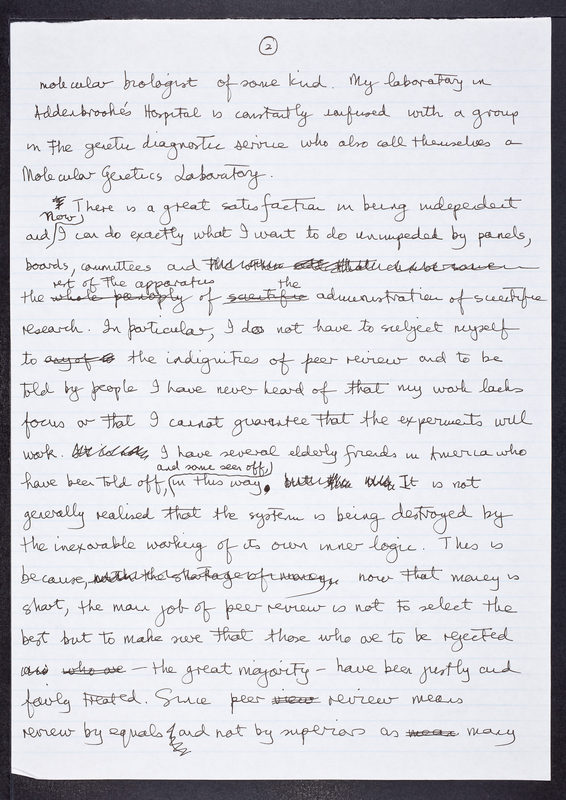 2
molecular biologist of some kind. My laboratory in
Addenbrooke's Hospital is constantly confused with a group
in the genetic diagnostic service who also call themselves a
Molecular Genetics Laboratory.
There is a great satisfaction in being independent
now
and I can do exactly what I want to do unimpeded by panels,
boards, committees and
rest of the apparatus the
the whole panoply of scientific administration of scientific
research. In particular, I do not have to subject myself
to any of the indignities of peer review and to be
told by people I have never heard of that my work lacks
focus or that I cannot guarantee that the experiments will
work. I have several elderly friends in America who
and some seen off,
have been told off, in this way. It is not
generally realised that the system is being destroyed by
the inexorable working of its own inner logic. This is
because, with the shortage of money, now that money is
short, the main job of peer review is not to select the
best but to make sure that those who are to be rejected
who are – the great majority – have been justly and
fairly treated. Since peer view review means
review by equals and not by superiors as means many